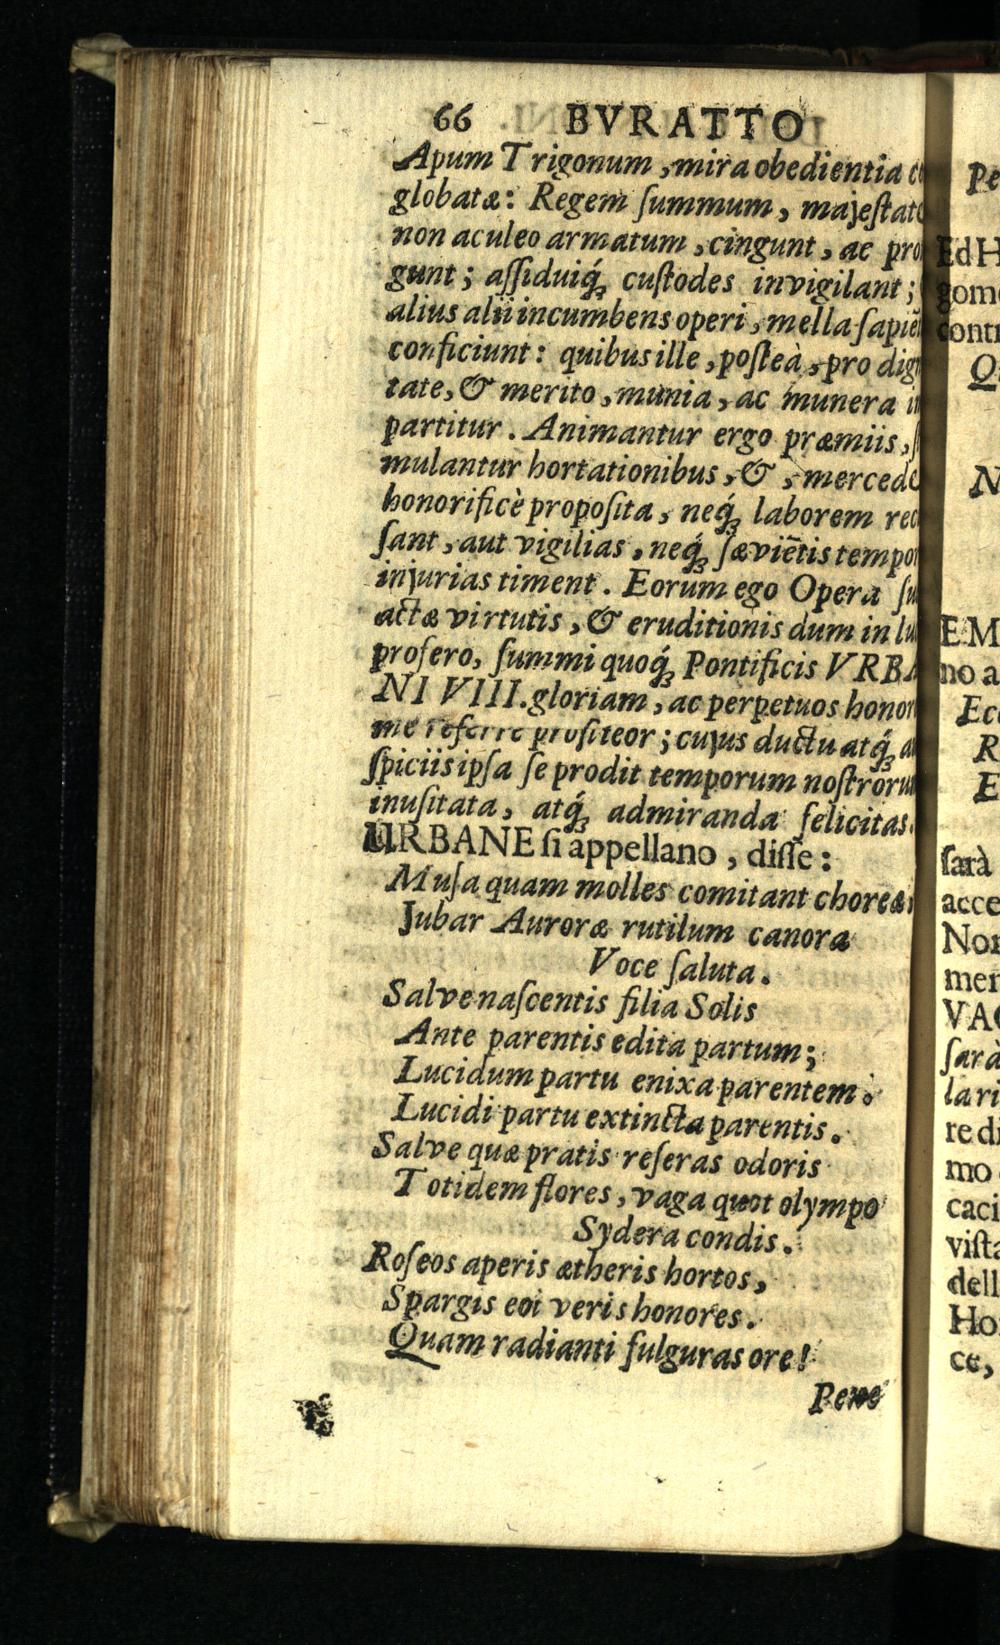 66 BVRATTO
Apum Trigonum, mira obedientia
globatæ: Regem ſummum, majeſtate
non aculeo armatum, cingunt, ac pro
gunt; aſſiduiq́ꝫ cuſtodes invigilant;
alius alii incumbens operi, mella ſapiẽ
conficiunt: quibus ille, poſteà, pro dig
tate, & merito, munia, ac munera
partitur. Animantur ergo præmiis,
mulantur hortationibus, &, mercede
honorificè propoſita, neq́ꝫ laborem rec
ſant, aut vigilias, neq́ꝫ ſæviẽtis tempor
injurias timent. Eorum ego Opera ſu
actæ virtutis, & eruditionis dum in lu
profero, ſummi quoq́ꝫ Pontificis VRBA
NI VIII. gloriam, ac perpetuos honor
me referre profiteor; cujus ductu atq́ꝫ au
ſpiciis ipſa ſe prodit temporum noſtroru
inuſitata, atq́ꝫ admiranda felicitas.
URBANE ſi appellano, diſſe:
Muſa quam molles comitant choreæ
Jubar Auroræ rutilum canora
Voce ſaluta.
Salve naſcentis filia Solis
Ante parentis edita partum;
Lucidum partu enixa parentem.
Lucidi partu extincta parentis.
Salve quæ pratis reſeras odoris
Totidem flores, vaga quot olympo
Sydera condis.
Roſeos aperis ætheris hortos,
Spargis eoi veris honores.
Quam radianti fulguras ore!
Pene
Pe
Ed H
gom
contr
Q
N
EM
no a
Ecc
R
E
ſarà
acce
Non
mer
VAG
ſarà
la ri
re di
mo
caci
viſta
dell
Ho
ce,